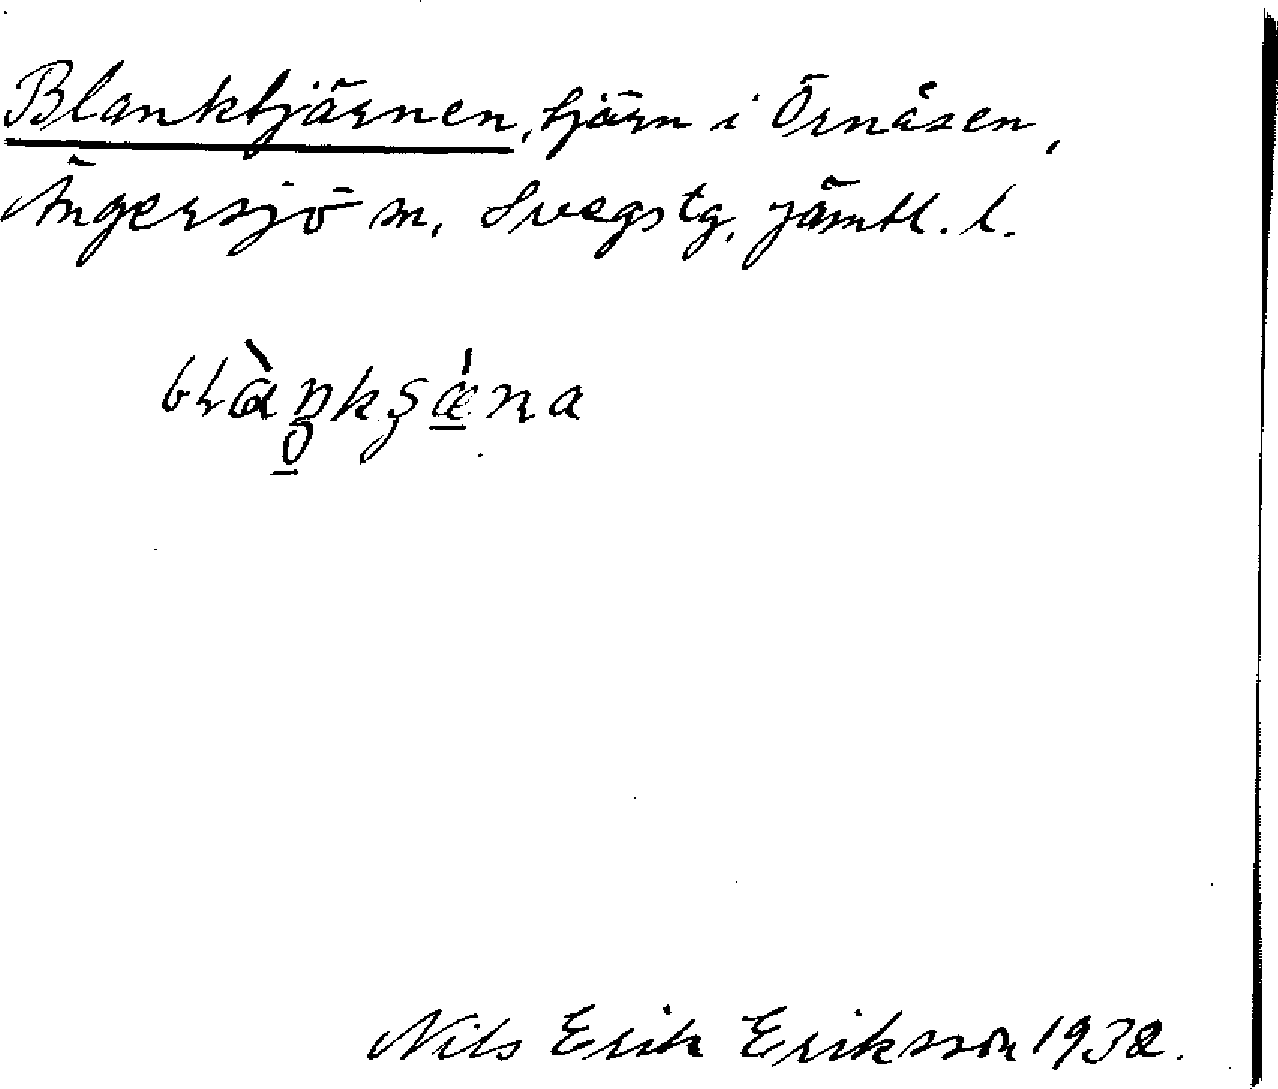 Blanktjärnen, tjärn i Örnåsen,
Ängersjö sn, Svegs tg, Jämtl. l.
Nils Erik Eriksson 1932.